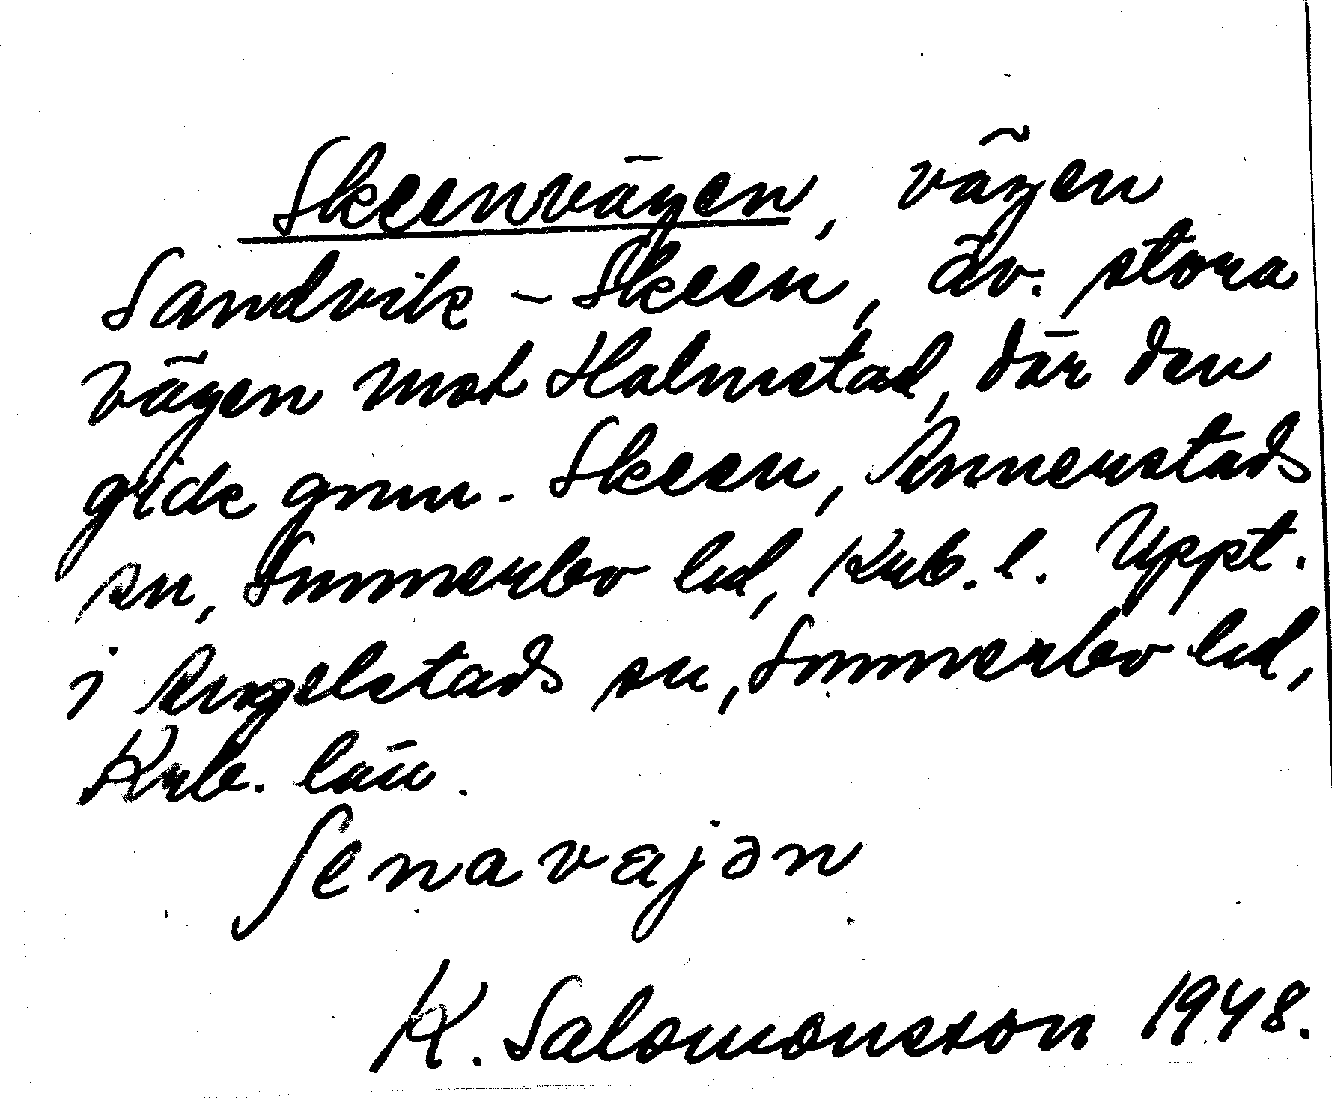 Skeenvägen, vägen
Sandvik - Skeen, äv. stora
vägen mot Halmstad, där den
gick gnm. Skeen, Annerstads
sn, Sunnerbo hd, Krb. l. Uppt.
i Angelstads sn, Sunnerbo hd,
Krb. län.
ʃenavajən
K. Salomonsson 1948.